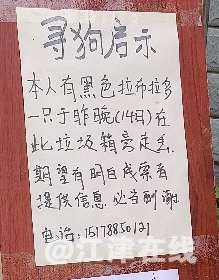 寻狗启示
本人有黑色拉布拉多
一只于昨晚(14号)在
此垃圾箱旁走丢
期望有明白成票者
提供信息 必当酬谢
电话:15178850121
@江津在线